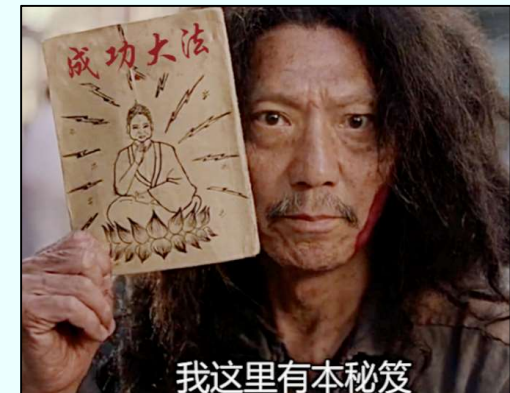 成功大法
我这里有本秘笈